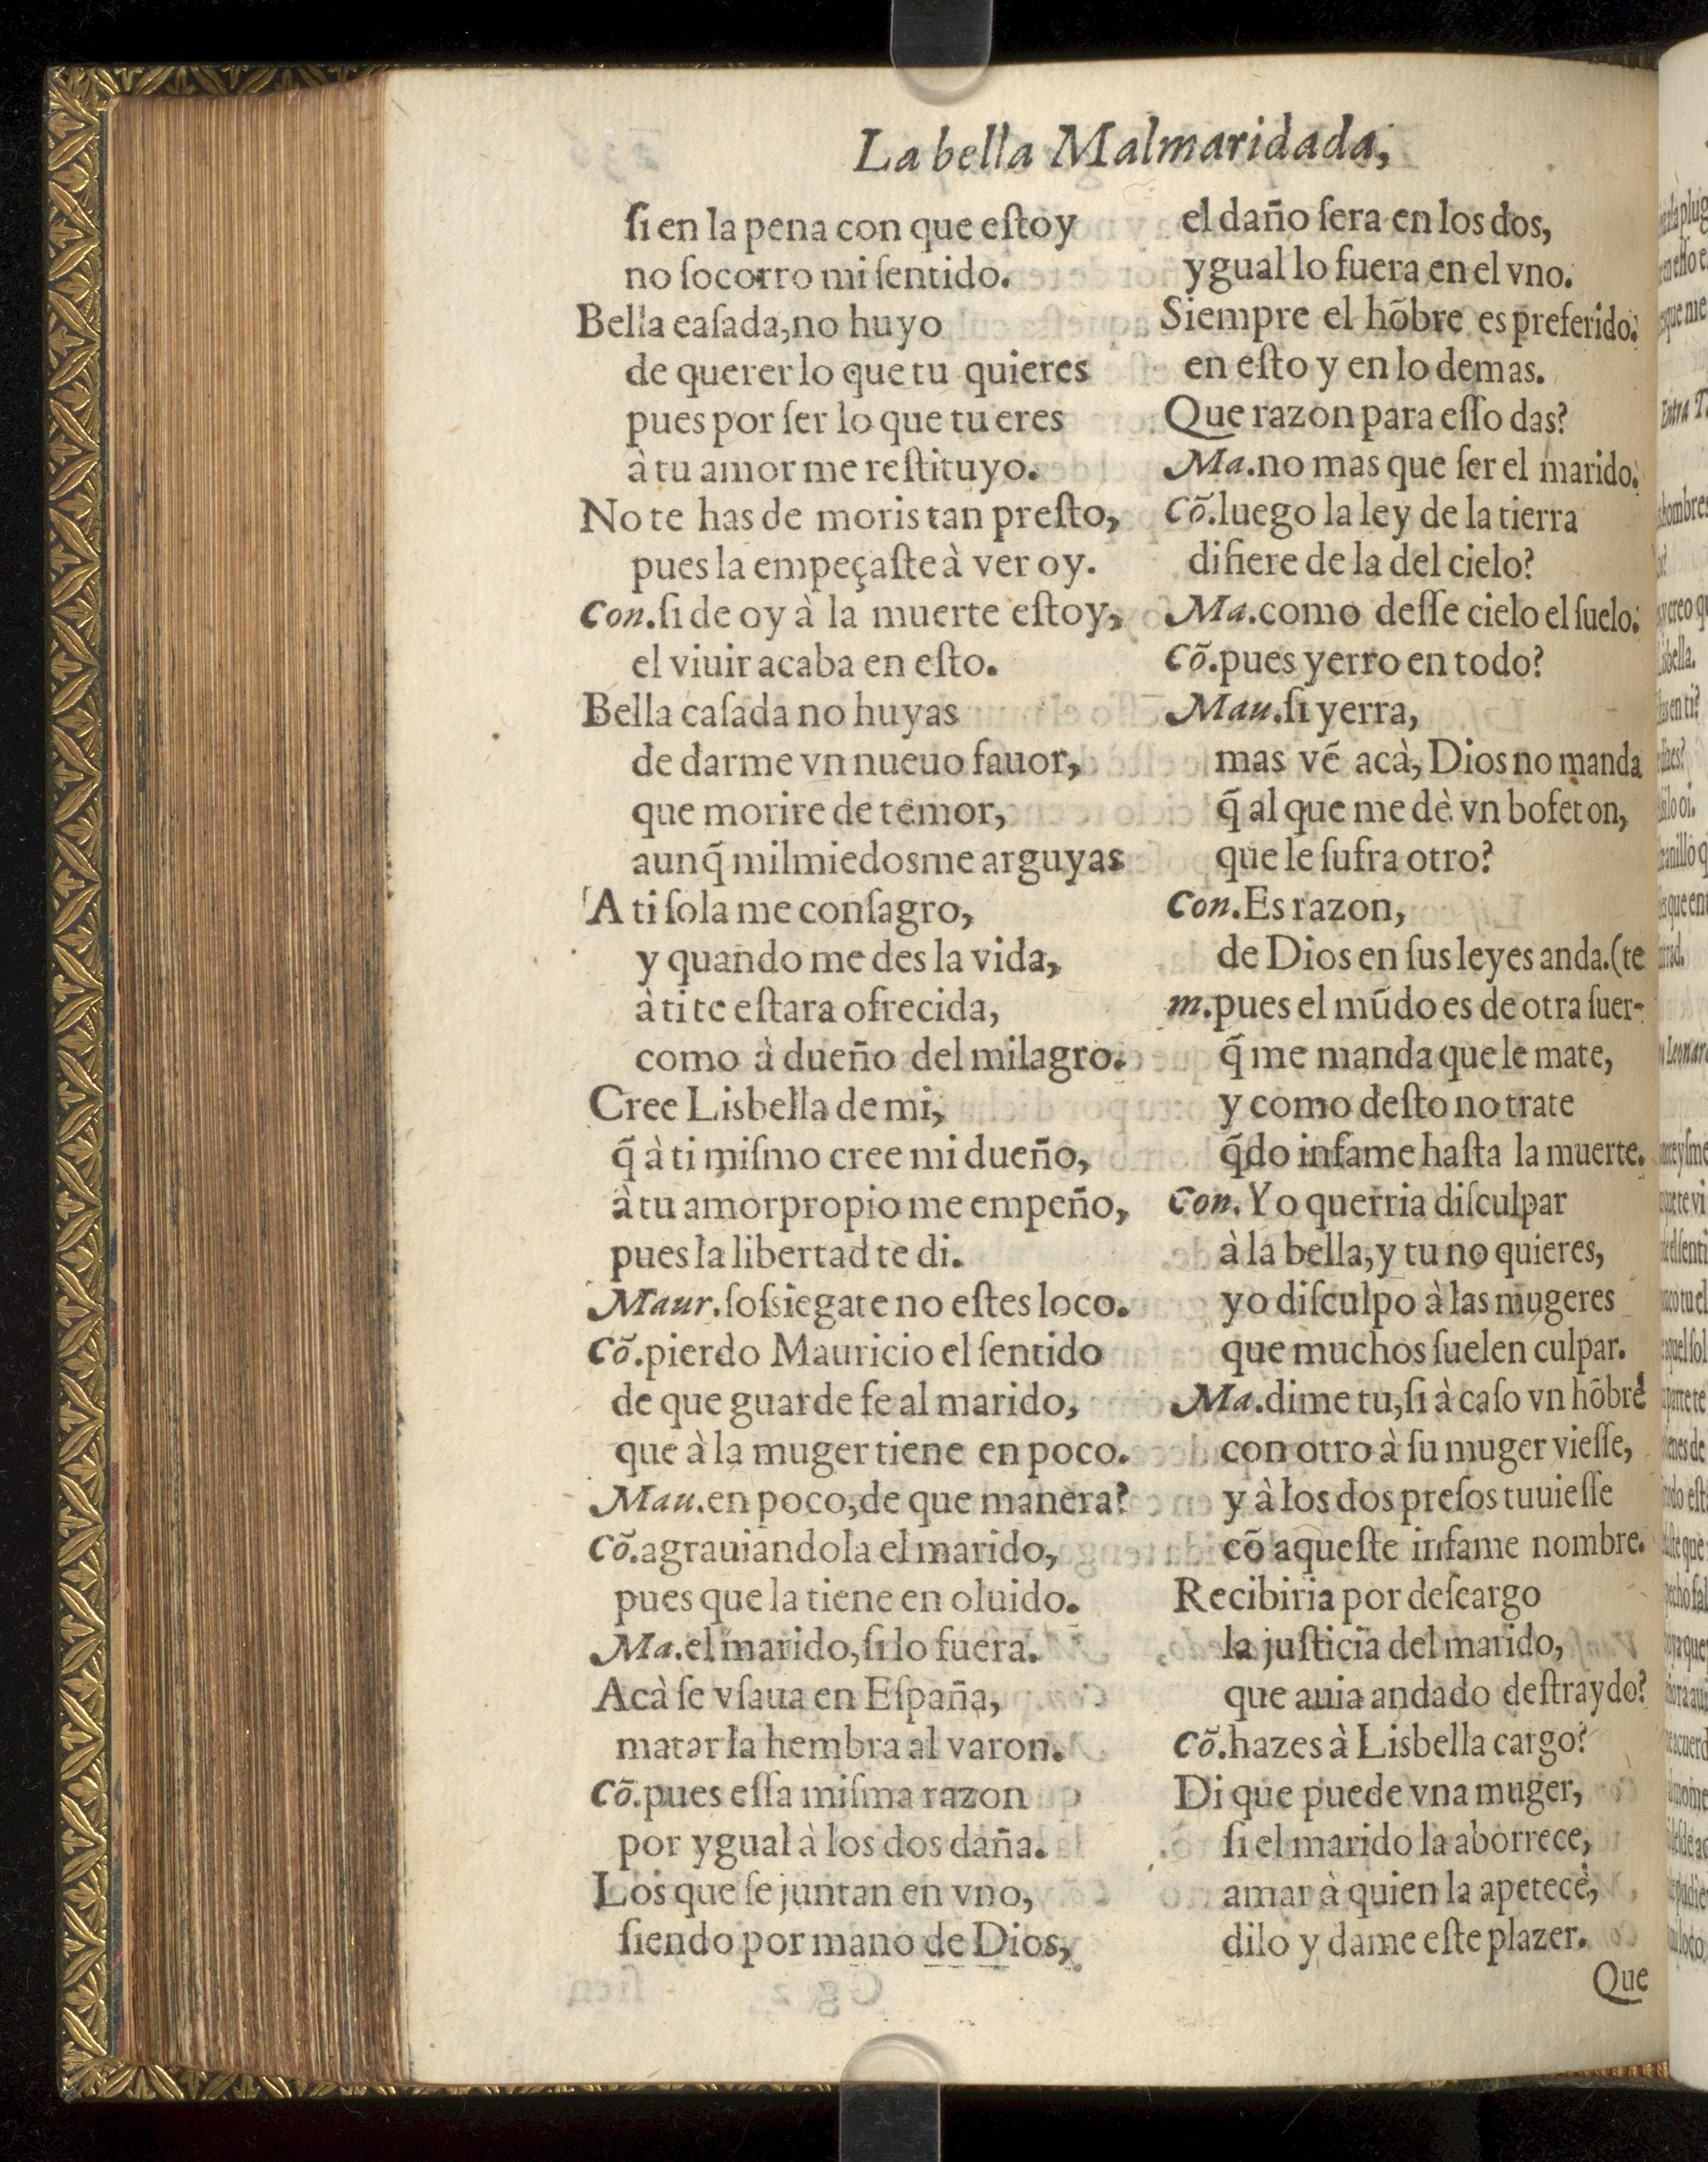 La bella Malmaridada,
ſi en la pena con que eſtoy
no ſocorro mi ſentido.
Bella eaſada, no huyo
de querer lo que tu quieres
pues por ſer lo que tu eres
à tu amor me reſtituyo.
No te has de moris tan preſto,
pues la empeçaſte à ver oy.
Con. ſi de oy à la muerte eſtoy,
el viuir acaba en eſto.
Bella caſada no huyas
de darme vn nueuo fauor,
que morire de temor,
aunq̃ mil miedos me arguyas
A ti ſola me conſagro,
y quando me des la vida,
à ti te eſtara ofrecida,
como à dueño del milagro.
Cree Lisbella de mi,
q̃ à ti miſmo cree mi dueño,
à tu amor propio me empeño,
pues la libertad te di.
Maur. ſoſsiegate no eſtes loco.
Cõ. pierdo Mauricio el ſentido
de que guarde fe al marido,
que à la muger tiene en poco.
Mau. en poco, de que manera?
Cõ. agrauiandola el marido,
pues que la tiene en oluido.
Ma. el marido, ſi lo fuera.
Acà ſe vſaua en Eſpaña,
matar la hembra al varon.
Cõ. pues eſſa miſma razon
por ygual à los dos daña.
Los que ſe juntan en vno,
ſiendo por mano de Dios,
el daño ſera en los dos,
ygual lo fuera en el vno.
Siempre el hõbre es preferido.
en eſto y en lo demas.
Que razon para eſſo das?
Ma. no mas que ſer el marido.
Cõ. luego la ley de la tierra
difiere de la del cielo?
Ma. como deſſe cielo el ſuelo.
Cõ. pues yerro en todo?
Mau. ſi yerra,
mas vẽ acà, Dios no manda
q̃ al que me dè vn bofeton,
que le ſufra otro?
Con. Es razon,
de Dios en ſus leyes anda. (te
m. pues el mũdo es de otra ſuer-
q̃ me manda que le mate,
y como deſto no trate
q̃do infame haſta la muerte.
Con. Yo querria diſculpar
à la bella, y tu no quieres,
yo diſculpo à las mugeres
que muchos ſuelen culpar.
Ma. dime tu, ſi à caſo vn hõbre
con otro à ſu muger vieſſe,
y à los dos preſos tuuieſſe
cõ aqueſte infame nombre.
Recibiria por deſcargo
la juſticia del marido,
que auia andado deſtraydo?
Cõ. hazes à Lisbella cargo?
Di que puede vna muger,
ſi el marido la aborrece,
amar à quien la apetece,
dilo y dame eſte plazer.
Que